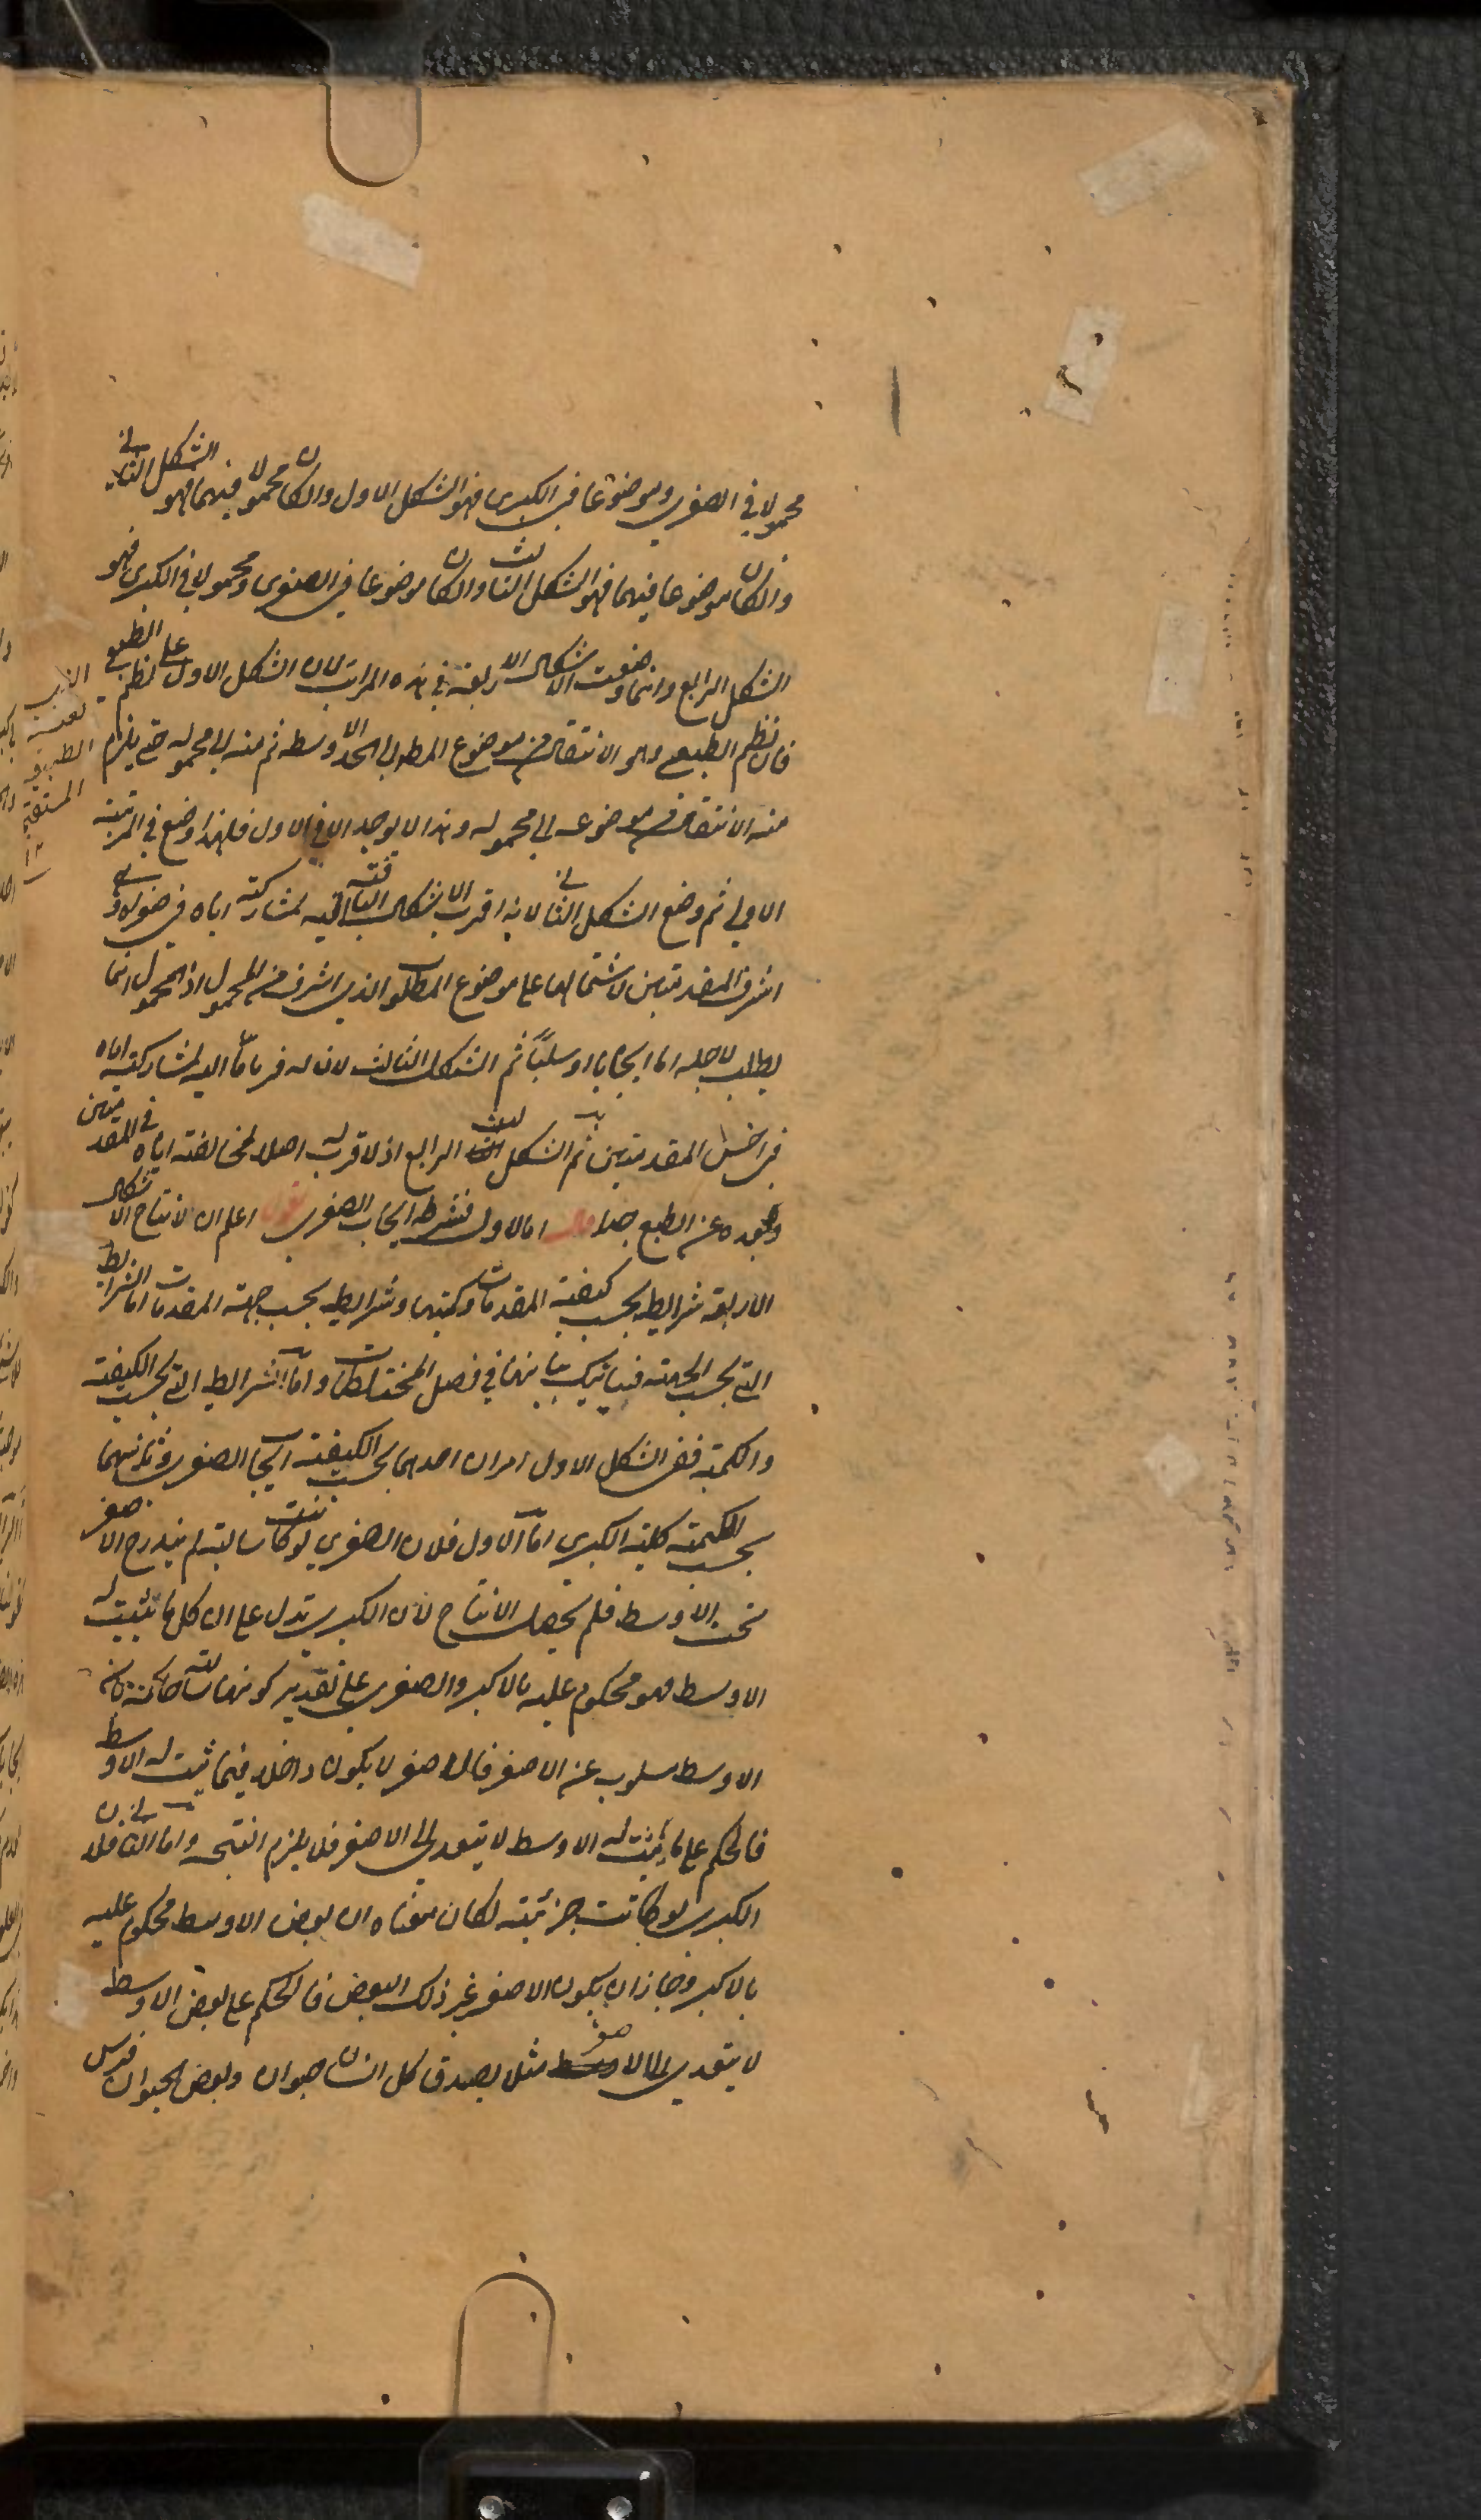 محمولا في الصغرى وموضوعا في الكبرى فهو الشكل الاول وان كان محمولا فيهما فهو الشكل الثاني
وان كان موضوعا فيهما فهو الشكل الثالث وان كان موضوعا في الصغرى ومحمولا في الكبرى فهو
الشكل الرابع وانما وضعت الاشكال الاربعة في هذه المراتب لان الشكل الاول على نظم الطبعي
فان نظم الطبعي وهو الانتقال من موضوع المط الى الحد الاوسط ثم منه الى محموله حتى يلزم
منه الانتقال من موضوعه الى محموله وهذا لا يوجد الا في الاول فلهذا وضع في المرتبة
الاولى ثم وضع الشكل الثاني لانه اقرب الاشكال الباقية اليه لمشاركته اياه في صغراه وهي
اشرف المقدمتين لاشتمالها على موضوع المطلوب الذي اشرف من المحمول اذ المحمول انما
يطلب لاجله اما ايجابا او سلبا ثم الشكل الثالث لان له قربا ما اليه لمشاركته اياه
في اخس المقدمتين ثم الشكل الرابع اذ لا قرب له اصلا لمخالفته اياه في المقدمتين
وبعده عن الطبع جدا قال اما الاول فشرطه ايجاب الصغرى اقول اعلم ان لانتاج الاشكال
الاربعة شرايط بحسب كيفية المقدمات وكميتها وشرايط بحسب جهة المقدمات اما الشرايط
التي بحسب الجهة فسياتيك بيانها في فصل المختلطات واما الشرايط التي بحسب الكيفية
والكمية ففي الشكل الاول امران احدهما بحسب الكيفية ايجاب الصغرى وثانيهما
بحسب الكمية كلية الكبرى اما الاول فلان الصغرى لو كانت سالبة لم يندرج الاصغر
تحت الاوسط فلم يحصل الانتاج لان الكبرى تدل على ان كل ما يثبت له
الاوسط فهو محكوم عليه بالاكبر والصغرى على تقدير كونها سالبة حاكمة بان
الاوسط مسلوب عن الاصغر فالاصغر لا يكون داخلا فيما ثبت له الاوسط
فالحكم على ما يثبت له الاوسط لا يتعدى الى الاصغر فلا يلزم النتيجة واما الثاني فلان
الكبرى لو كانت جزئية لكان معناه ان بعض الاوسط محكوم عليه
بالاكبر وجاز ان يكون الاصغر غير ذلك البعض فالحكم على بعض الاوسط
لا يتعدى الى الاصغر مثلا يصدق كل انسان حيوان وبعض الحيوان فرس